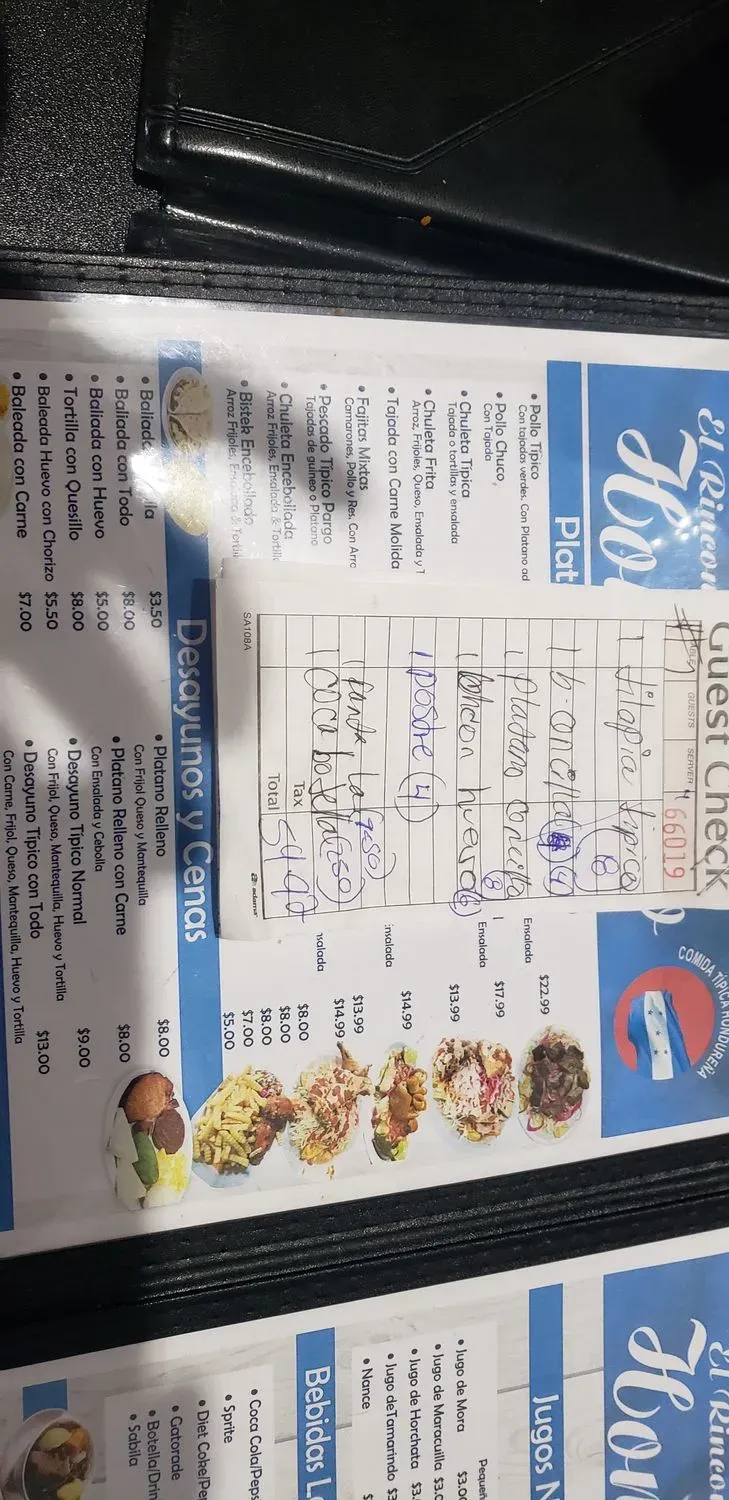 El Rincon
Ho
Plat
• Pollo Típico
Con tajadas verdes. Con Platano ad
• Pollo Chuco,
Con Tajada
• Chuleta Típica
Tajada o tortillas y ensalada
• Chuleta Frita
Arroz, Frijoles, Queso, Ensalada y T
• Tajada con Carne Molida
• Fajitas Mixtas
Camarones, Pollo y Res. Con Arro
• Pescado Típico Pargo
Tajadas de guineo o Platano
• Chuleta Encebollada
Arroz Frijoles, Ensalada & Tortill
• Bistek Encebollado
Arroz Frijoles, Ensalada & Tortill
Guest Check
TABLE
GUESTS
SERVER
66019
1 tilapia tipica
8
1 platano
1 huevo (6)
1 postre (4)
1 fanta
1 coca botella
Tax
Total
54.92
SA108A
adams
COMIDA TÍPICA HONDUREÑA
Ensalada
$22.99
Ensalada
$17.99
$13.99
nsalada
$14.99
nsalada
$13.99
$14.99
$8.00
$8.00
$8.00
$7.00
$5.00
Desayunos y Cenas
lla $3.50
• Baliada con Todo $8.00
• Baliada con Huevo $5.00
• Tortilla con Quesillo $8.00
• Baleada Huevo con Chorizo $5.50
• Baleada con Carne $7.00
• Platano Relleno $8.00
Con Frijol Queso y Mantequilla
• Platano Relleno con Carne $8.00
Con Ensalada y Cebolla
• Desayuno Típico Normal $9.00
Con Frijol, Queso, Mantequilla, Huevo y Tortilla
• Desayuno Típico con Todo $13.00
Con Carne, Frijol, Queso, Mantequilla, Huevo y Tortilla
El Rinco
Hon
Jugos N
Pequeñ
• Jugo de Mora $3.00
• Jugo de Maracuilla $3.0
• Jugo de Horchata $3.
• Jugo deTamarindo $3
• Nance $
Bebidas L
• Coca Cola/Peps
• Sprite
• Diet Coke/Pe
• Gatorade
• Botella/Drin
• Sabila